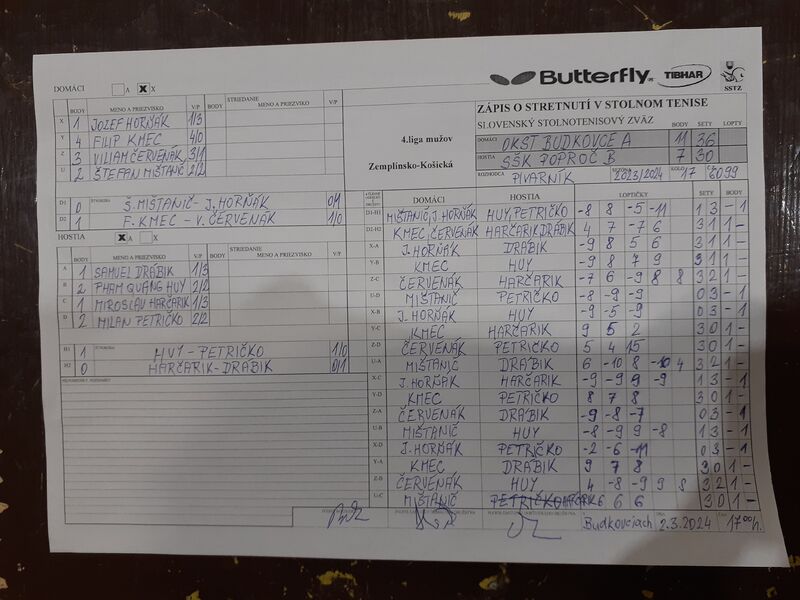 Butterfly TIBHAR SSTZ
DOMÁCI A X X
BODY MENO A PRIEZVISKO V/P BODY STRIEDANIE MENO A PRIEZVIKO V/P
X 1 JOZEF HORŇÁK 1/3
Y 4 FILIP KMEC 4/0
Z 3 VILIAM ČERVENÁK 3/1
U 2 ŠTEFAN MIŠTANIČ 2/2
D1 0 Š. MIŠTANIČ - J. HORŇÁK 0/1
D2 1 F. KMEC - V. ČERVENÁK 1/0
HOSTIA X A X
BODY MENO A PRIEZVISKO V/P BODY STRIEDANIE MENO A PRIEZVISKO V/P
A 1 SAMUEL DRÁBIK 1/3
B 2 PHAM QUANG HUY 2/2
C 1 MIROSLAV HARČARIK 1/3
D 2 MILAN PETRIČKO 2/2
H1 1 HUY - PETRIČKO 1/0
H2 0 HARČARIK - DRÁBIK 0/1
4.liga mužov
Zemplínsko-Košická
ZÁPIS O STRETNUTÍ V STOLNOM TENISE
SLOVENSKÝ STOLNOTENISOVÝ ZVÄZ BODY SETY LOPTY
DOMÁCI OKST BUDKOVCE A 11 36
HOSTIA SŠK POPROČ B 7 30
ROZHODCA PIVARNÍK 2023/2024 KOLO 17
DOMÁCI HOSTIA LOPTIČKY SETY BODY
D1-H1 MIŠTANIČ, J. HORŇÁK HUY, PETRIČKO -8 8 -5 -11 1 3 - 1
D2-H2 KMEC, ČERVENÁK HARČARIK, DRÁBIK 4 7 -7 6 3 1 1 -
X-A J. HORŇÁK DRÁBIK -9 8 5 6 3 1 1 -
Y-B KMEC HUY -8 8 7 9 3 1 1 -
Z-C ČERVENÁK HARČARIK -7 6 -9 8 8 3 2 1 -
U-D MIŠTANIČ PETRIČKO -8 -9 -9 0 3 - 1
X-B J. HORŇÁK HUY -9 -5 -9 0 3 - 1
Y-C KMEC HARČARIK 9 5 2 3 0 1 -
Z-D ČERVENÁK PETRIČKO 5 4 15 3 0 1 -
U-A MIŠTANIČ DRÁBIK 6 -10 8 -10 4 3 2 1 -
X-C J. HORŇÁK HARČARIK -9 -9 9 -9 1 3 - 1
Y-D KMEC PETRIČKO 8 7 8 3 0 1 -
Z-A ČERVENÁK DRÁBIK -9 -8 -7 0 3 - 1
U-B MIŠTANIČ HUY -8 -9 9 -8 1 3 - 1
X-D J. HORŇÁK PETRIČKO -2 -6 -11 0 3 - 1
Y-A KMEC DRÁBIK 9 7 8 3 0 1 -
Z-B ČERVENÁK HUY 4 -8 -9 9 8 3 2 1 -
U-C MIŠTANIČ 6 6 6 3 0 1 -
V Budkovciach 2.3.2024 17 00 h.